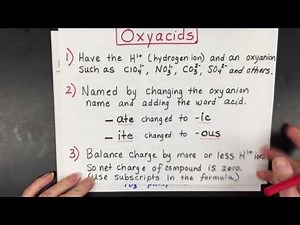 Oxyacids
1) Have the H¹⁺ (hydrogen ion) and an oxyanion
such as ClO₄¹⁻, NO₃¹⁻, CO₃²⁻, SO₄²⁻ and others.
2) Named by changing the oxyanion
name and adding the word acid.
– ate changed to -ic
– ite changed to -ous
3) Balance charge by more or less H¹⁺ ions
So net charge of compound is zero.
(Use subscripts in the formula)